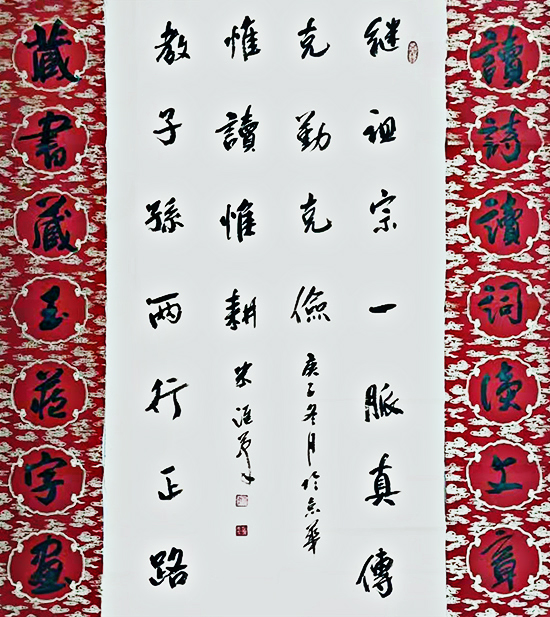 讀詩讀詞读文章
繼祖宗一脈真傳
克勤克儉
庚子冬月於京華
惟讀惟耕
教子孫兩行正路
藏書藏玉藏字畫